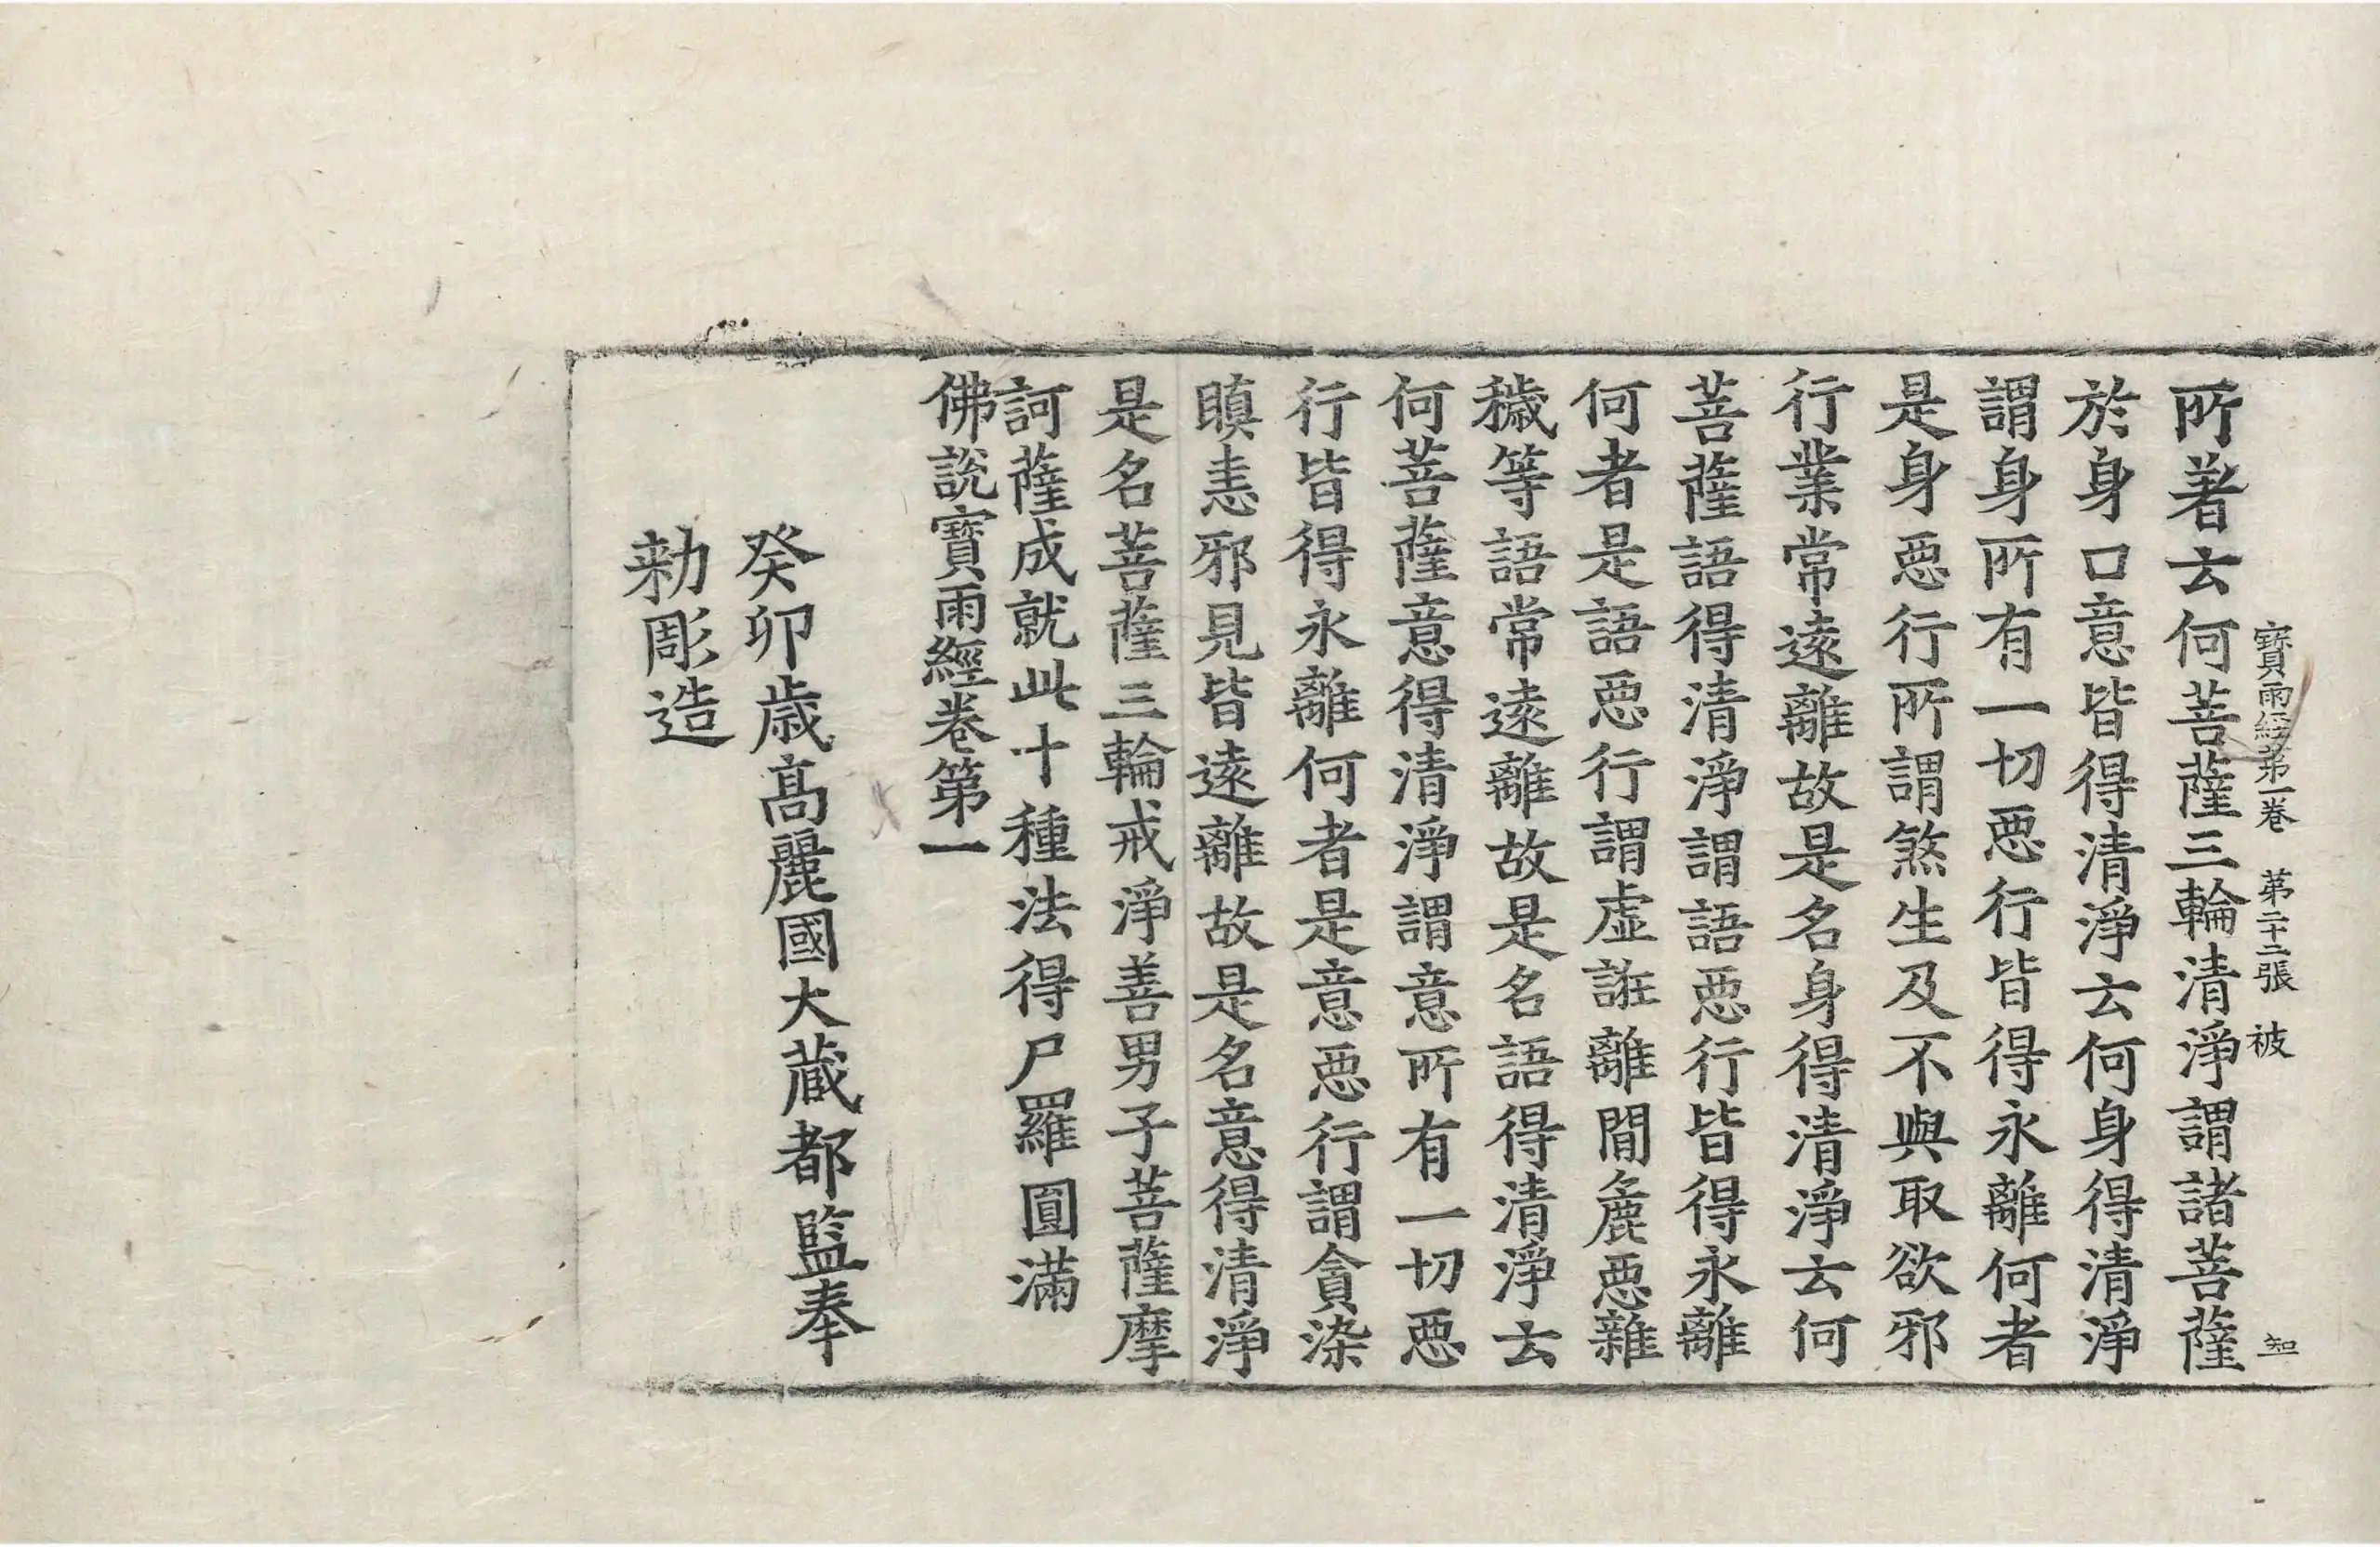 寶雨經第一卷　第二十二張　被　知
所著云何菩薩三輪清淨謂諸菩薩
於身口意皆得清淨云何身得清淨
謂身所有一切惡行皆得永離何者
是身惡行所謂煞生及不與取欲邪
行業常遠離故是名身得清淨云何
菩薩語得清淨謂語惡行皆得永離
何者是語惡行謂虛誑離間麁惡雜
穢等語常遠離故是名語得清淨云
何菩薩意得清淨謂意所有一切惡
行皆得永離何者是意惡行謂貪染
瞋恚邪見皆遠離故是名意得清淨
是名菩薩三輪戒淨善男子菩薩摩
訶薩成就此十種法得尸羅圓滿
佛說寶雨經卷第一
癸卯歲高麗國大藏都監奉
勑彫造